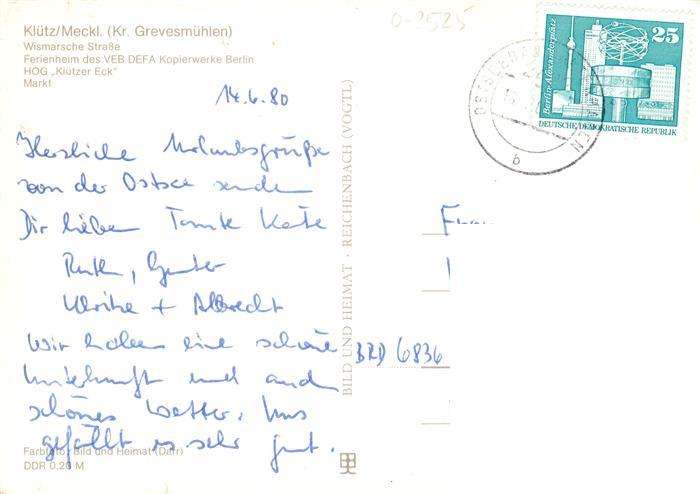 Klütz/Meckl. (Kr. Grevesmühlen)
Wismarsche Straße
Ferienheim des VEB DEFA Kopierwerke Berlin
HOG „Klützer Eck"
Markt
0-2525
14.6.80
Herzliche Urlaubsgrüße
von der Ostsee senden
Dir lieben Tante Kate
Ruth, Gunter
Ulrike + Albrecht
Wir haben eine schöne
Unterkunft und auch
schönes Wetter. Uns
gefällt es sehr gut.
Farbfoto: Bild und Heimat (Darr)
DDR 0,20 M
BILD UND HEIMAT · REICHENBACH (VOGTL)
BRD 6836
25
Berlin-Alexanderplatz
DEUTSCHE DEMOKRATISCHE REPUBLIK
b